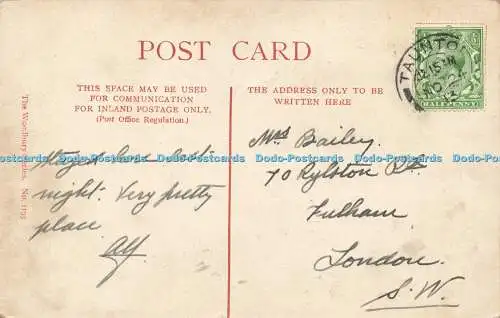 POST CARD
THIS SPACE MAY BE USED
FOR COMMUNICATION
FOR INLAND POSTAGE ONLY.
(Post Office Regulation.)
THE ADDRESS ONLY TO BE
WRITTEN HERE
TAUNTO
HALFPENNY
The Wardbury Series. No.
Stayed here last
night. Very pretty
place.
Alf.
Mrs Bailey.
70 Rylston Rd
Fulham
London.
S.W.
Dodo-Postcards Dodo-Postcards Dodo-Postcards Dodo-Postcards Dodo-Postcards Dodo-Postcards